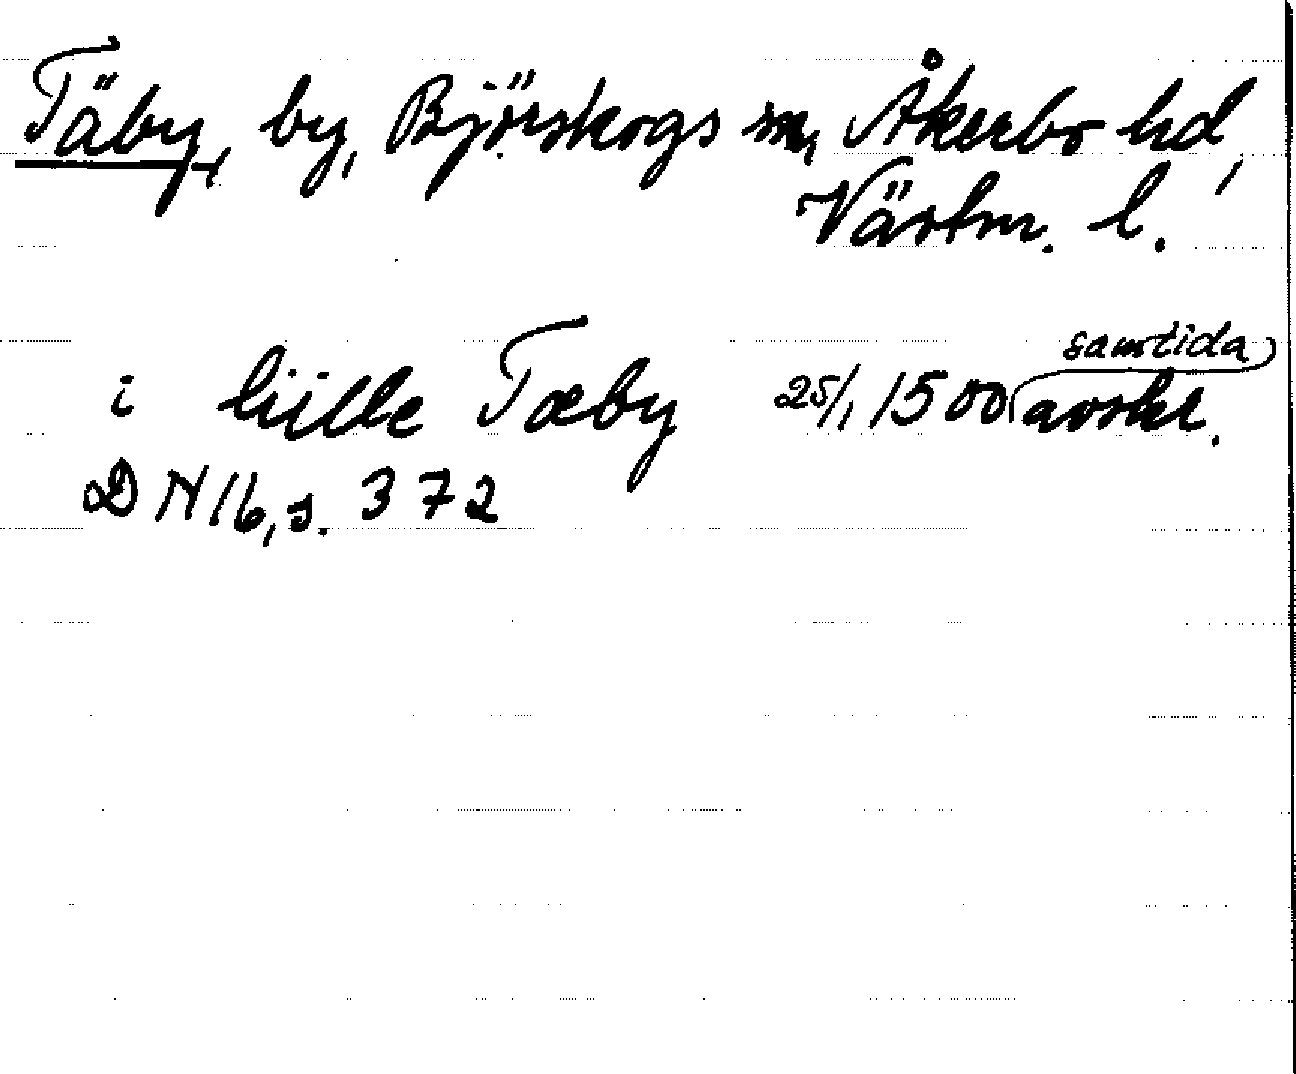 Täby, by, Björskogs sn, Åkerbo hd,
Västm. l.
i liille Tæby 25/1 1500 (samtida) avskr.
DN 16, s. 372